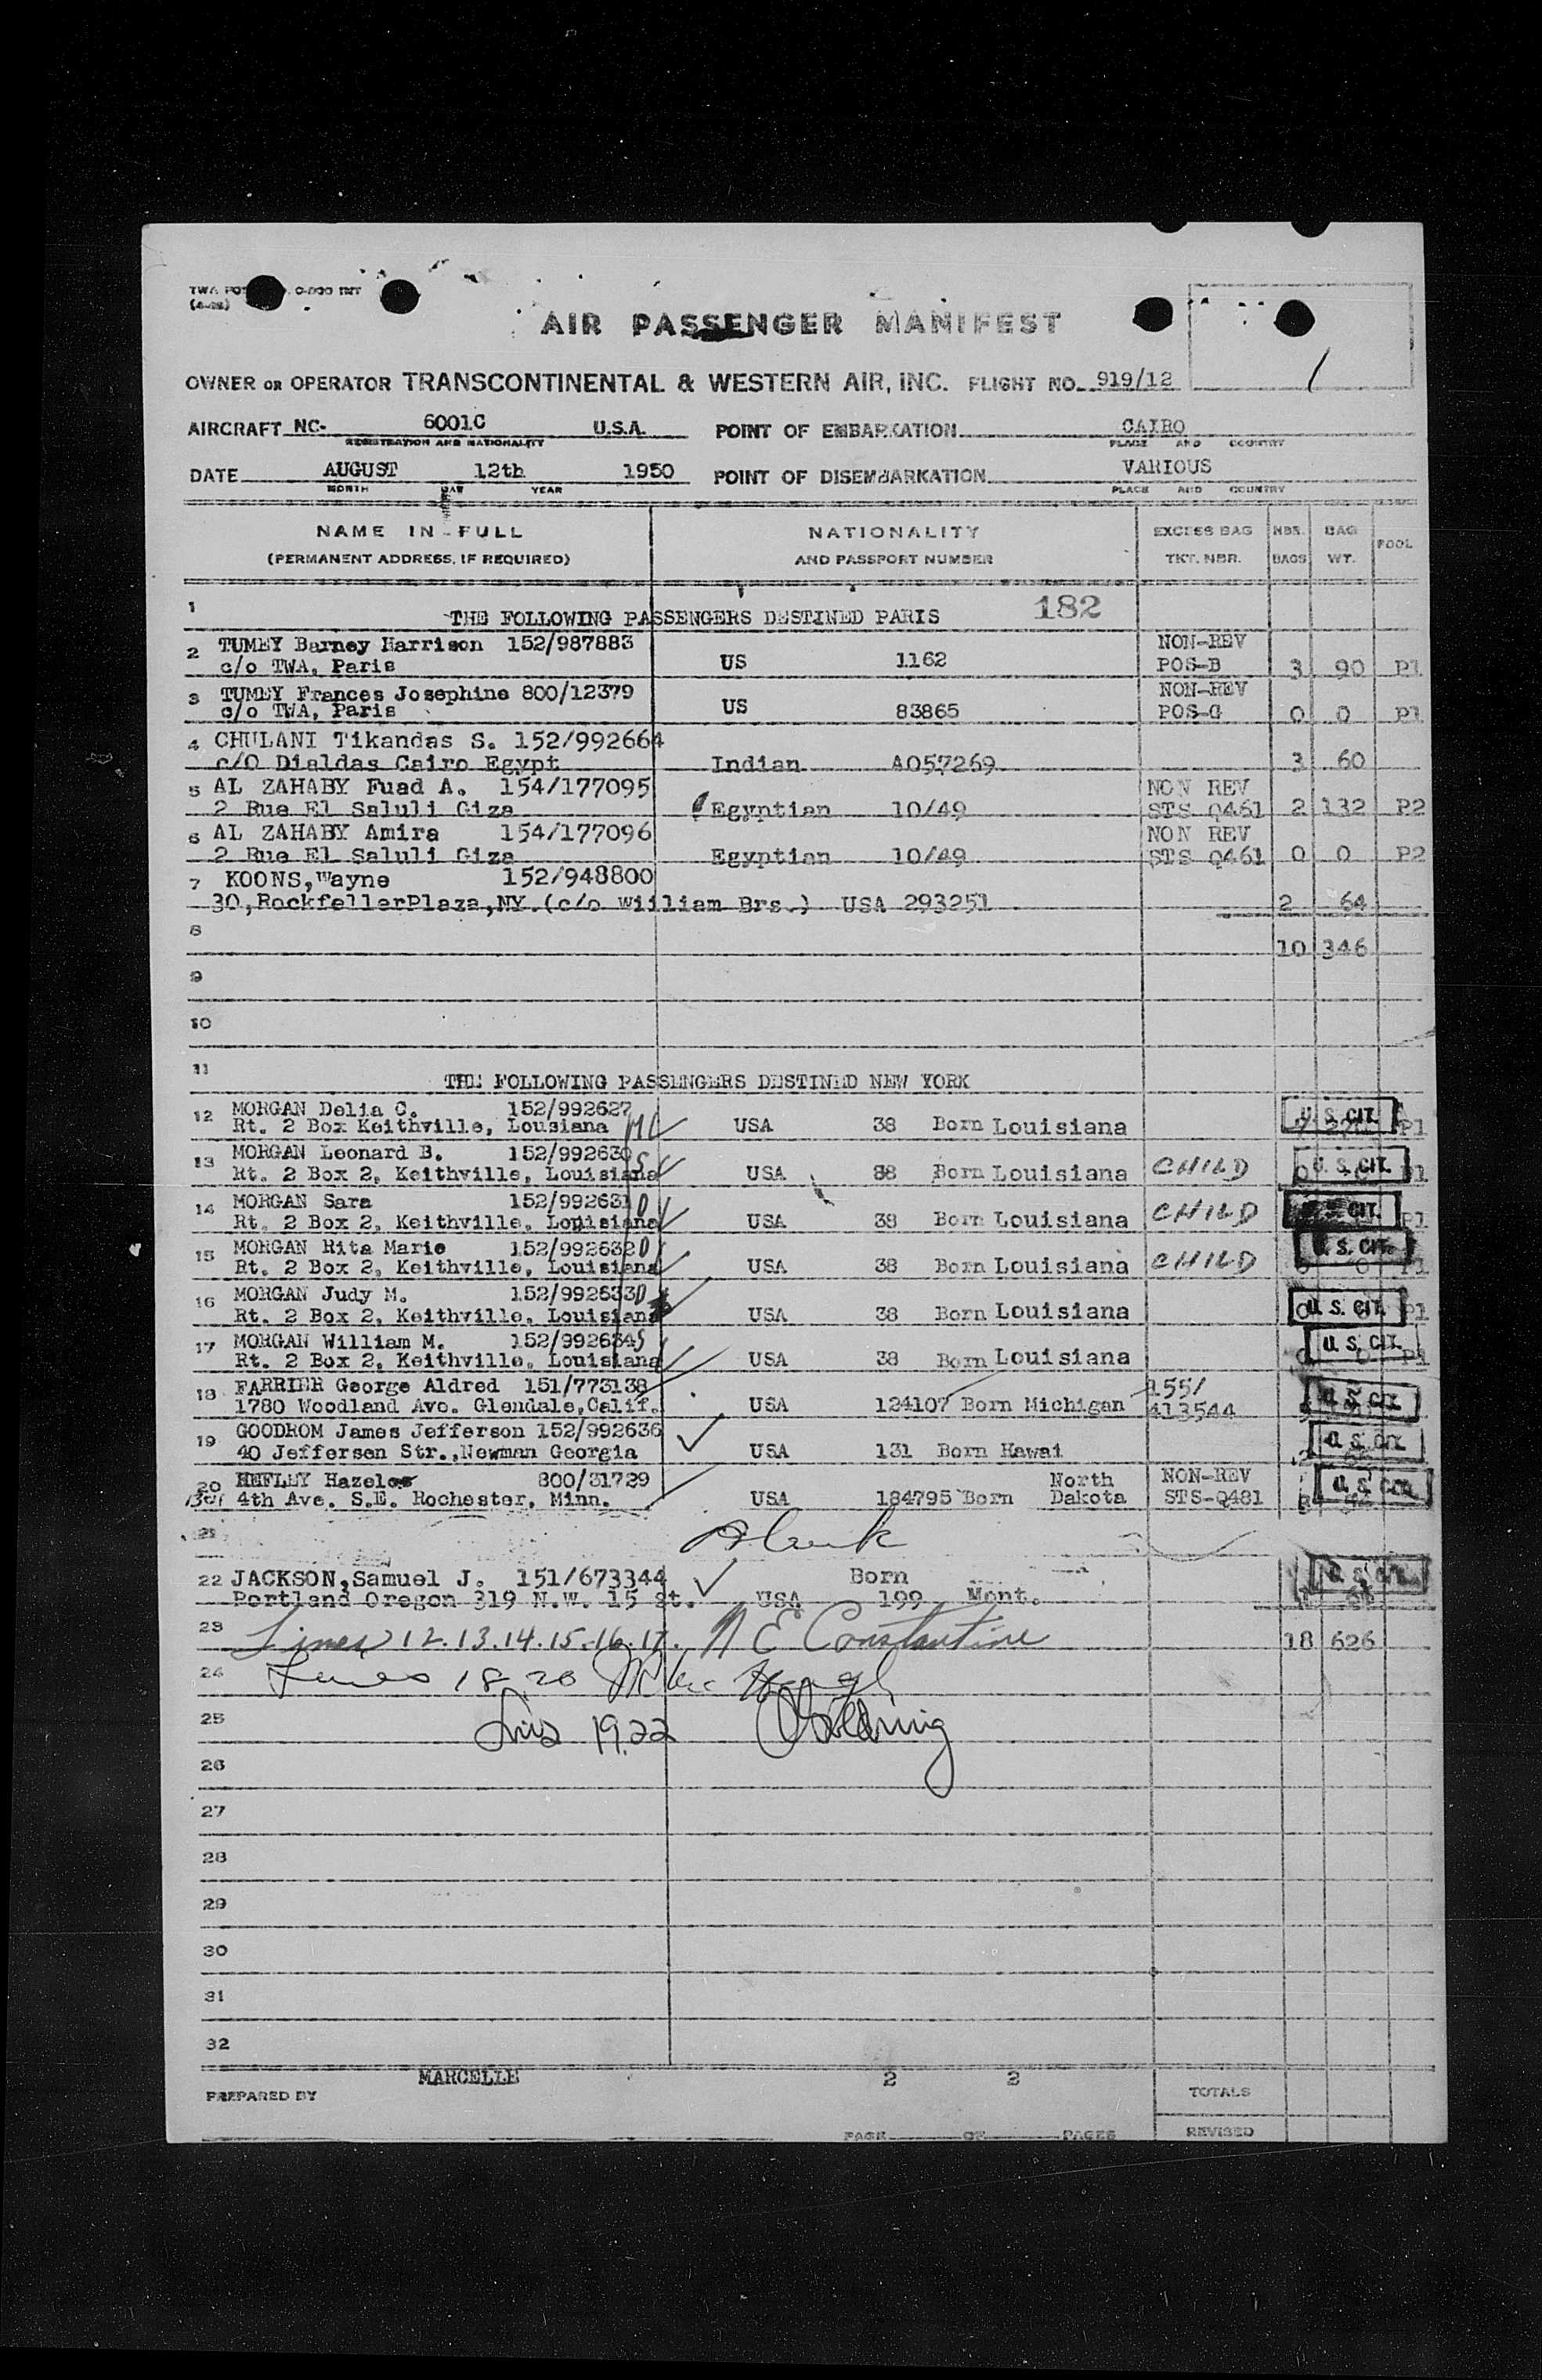 AIR PASSENGER MANIFEST
OWNER OR OPERATOR TRANSCONTINENTAL & WESTERN AIR, INC. FLIGHT NO. 919/12
AIRCRAFT NC- 6001C U.S.A. POINT OF EMBARKATION CAIRO
REGISTRATION AND NATIONALITY PLACE AND COUNTRY
DATE AUGUST 12th 1950 POINT OF DISEMBARKATION VARIOUS
MONTH DAY YEAR PLACE AND COUNTRY
NAME IN FULL NATIONALITY EXCESS BAG NBR. BAG POOL
(PERMANENT ADDRESS, IF REQUIRED) AND PASSPORT NUMBER TKT. NBR. BAGS WT.
1 THE FOLLOWING PASSENGERS DESTINED PARIS 182
2 TUMEY Barney Harrison 152/987883 NON-REV
c/o TWA, Paris US 1162 POS-B 3 90 P1
3 TUMEY Frances Josephine 800/12379 NON-REV
c/o TWA, Paris US 83865 POS-G 0 0 P1
4 CHULANI Tikandas S. 152/992664
c/O Dialdas Cairo Egypt Indian A057269 3 60
5 AL ZAHABY Fuad A. 154/177095 NON REV
2 Rue El Saluli Giza Egyptian 10/49 STS Q461 2 132 P2
6 AL ZAHABY Amira 154/177096 NON REV
2 Rue El Saluli Giza Egyptian 10/49 STS Q461 0 0 P2
7 KOONS, Wayne 152/948800
30,RockfellerPlaza,NY.(c/o wiiliam Brs.) USA 293251 2 64
8 10 346
9
10
11 THE FOLLOWING PASSENGERS DESTINED NEW YORK
12 MORGAN Delia C. 152/992627 U. S. CIT.
Rt. 2 Box Keithville, Lousiana USA 38 Born Louisiana P1
13 MORGAN Leonard B. 152/992630 U. S. CIT.
Rt. 2 Box 2, Keithville, Louisiana USA 38 Born Louisiana CHILD
14 MORGAN Sara 152/992631 CIT.
Rt. 2 Box 2, Keithville, Louisiana USA 38 Born Louisiana CHILD P1
15 MORGAN Rita Marie 152/992632 U. S. CIT.
Rt. 2 Box 2, Keithville, Louisiana USA 38 Born Louisiana CHILD P1
16 MORGAN Judy M. 152/992633 U. S. CIT.
Rt. 2 Box 2, Keithville, Louisiana USA 38 Born Louisiana P1
17 MORGAN William M. 152/992634 U. S. CIT.
Rt. 2 Box 2, Keithville, Louisiana USA 38 Born Louisiana P1
18 FARRIER George Aldred 151/773138 155/ U. S. CIT.
1780 Woodland Ave. Glendale,Calif. USA 124107 Born Michigan 413544
19 GOODROM James Jefferson 152/992636 U. S. CIT.
40 Jefferson Str.,Newman Georgia USA 131 Born Hawai
20 HEFLEY Hazel 800/31729 North NON-REV U. S. CIT.
4th Ave. S.E. Rochester, Minn. USA 184795 Born Dakota STS-Q481
21 Blank
22 JACKSON,Samuel J. 151/673344 Born U. S. CIT.
Portland Oregon 319 N.W. 15 St. USA 199 Mont.
23 Lines 12.13.14.15.16.17. N E Constantine 18 626
24 Lines 18 20
25 19.22
26
27
28
29
30
31
32
MARCELLE 2 2
PREPARED BY TOTALS
PAGE OF PAGES REVISED